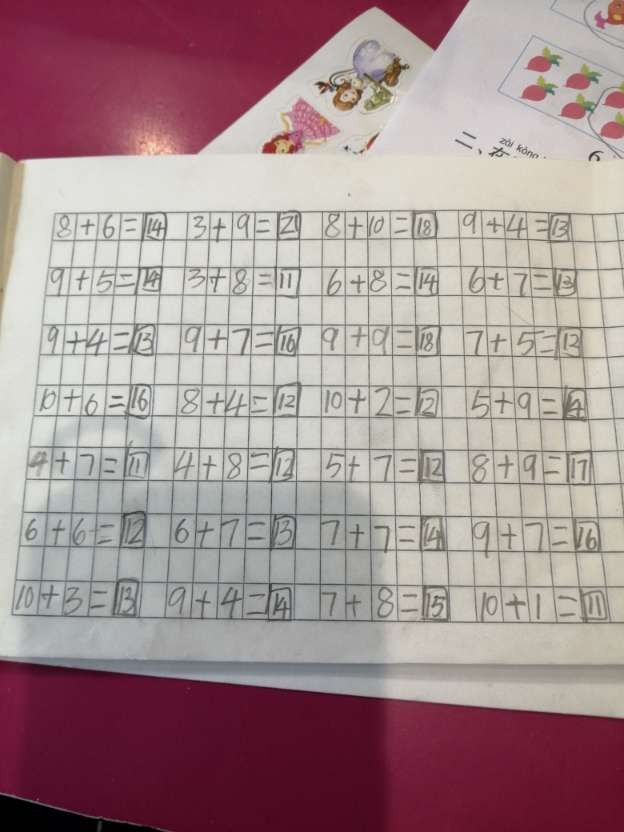 zài kòng
二、在
6
8+6=14 3+9=21 8+10=18 9+4=13
9+5=14 3+8=11 6+8=14 6+7=13
9+4=13 9+7=16 9+9=18 7+5=12
10+6=16 8+4=12 10+2=12 5+9=14
4+7=11 4+8=12 5+7=12 8+9=17
6+6=12 6+7=13 7+7=14 9+7=16
10+3=13 9+4=14 7+8=15 10+1=11